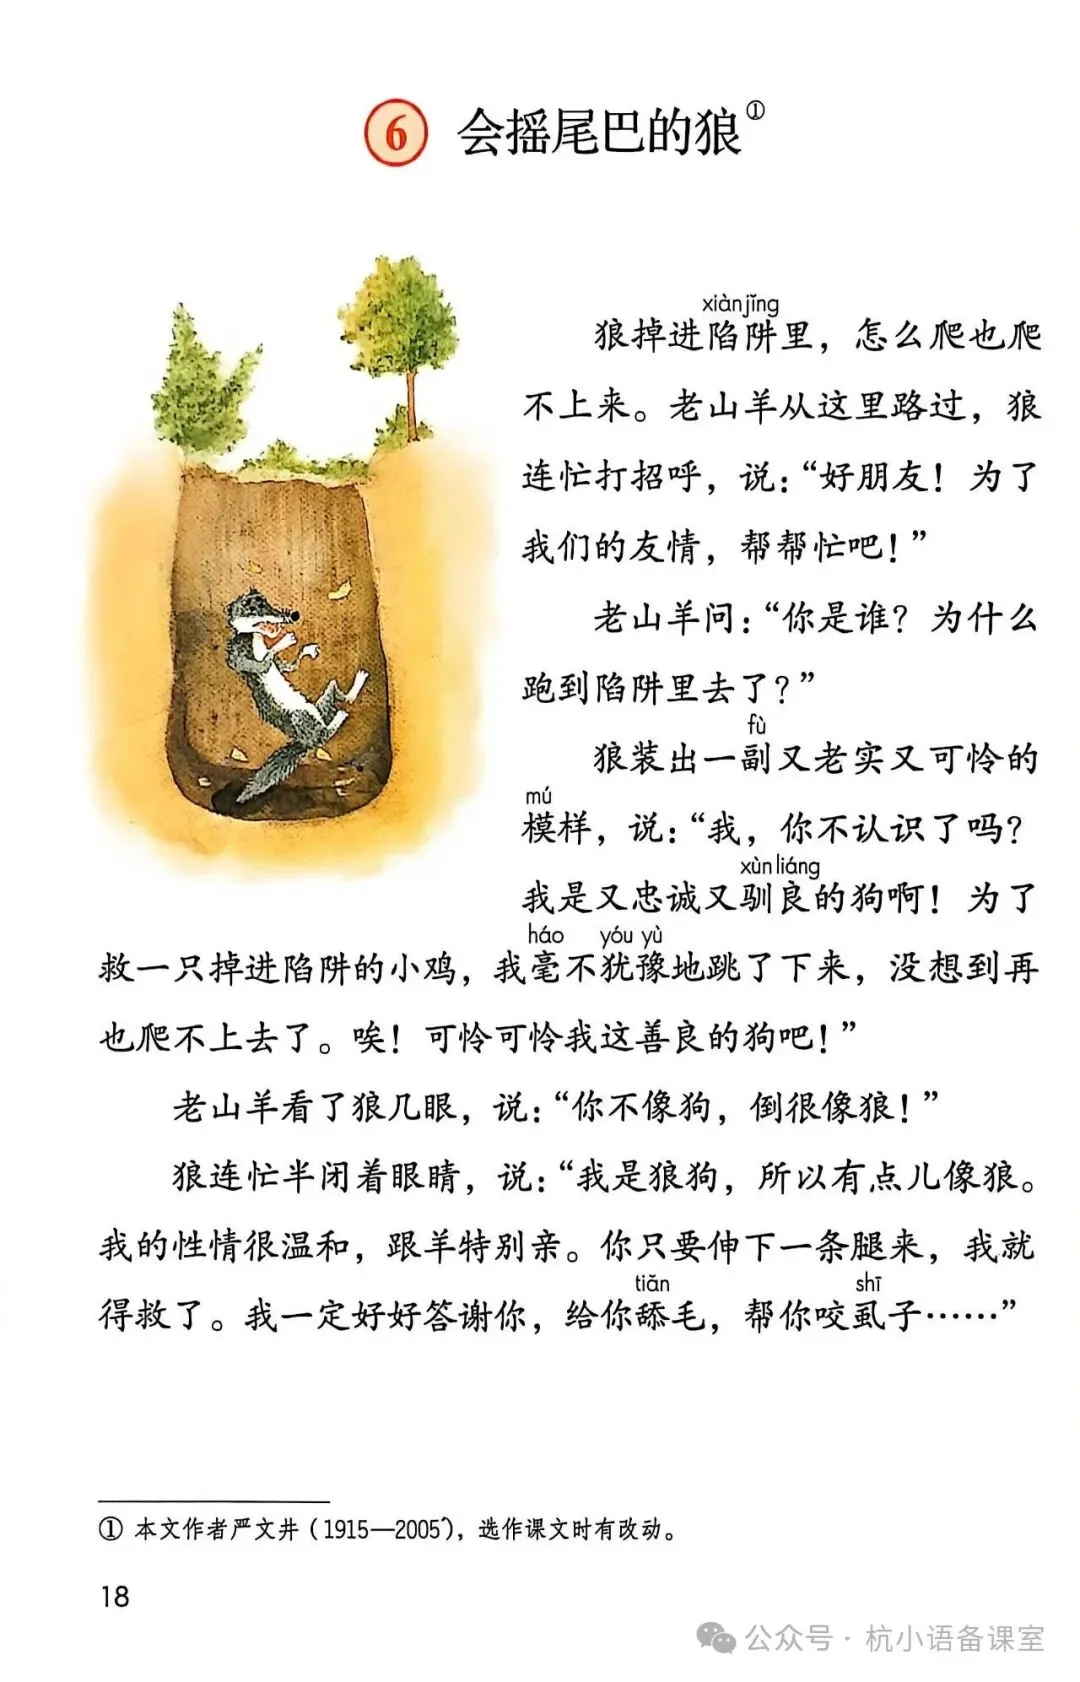 6 会摇尾巴的狼①
xiànjǐng
狼掉进陷阱里，怎么爬也爬
不上来。老山羊从这里路过，狼
连忙打招呼，说：“好朋友！为了
我们的友情，帮帮忙吧！”
老山羊问：“你是谁？为什么
跑到陷阱里去了？”
fù
狼装出一副又老实又可怜的
mú
模样，说：“我，你不认识了吗？
xùn liáng
我是又忠诚又驯良的狗啊！为了
háo yóu yù
救一只掉进陷阱的小鸡，我毫不犹豫地跳了下来，没想到再
也爬不上去了。唉！可怜可怜我这善良的狗吧！”
老山羊看了狼几眼，说：“你不像狗，倒很像狼！”
狼连忙半闭着眼睛，说：“我是狼狗，所以有点儿像狼。
我的性情很温和，跟羊特别亲。你只要伸下一条腿来，我就
tiǎn shī
得救了。我一定好好答谢你，给你舔毛，帮你咬虱子……”
① 本文作者严文井（1915—2005），选作课文时有改动。
18
公众号·杭小语备课室